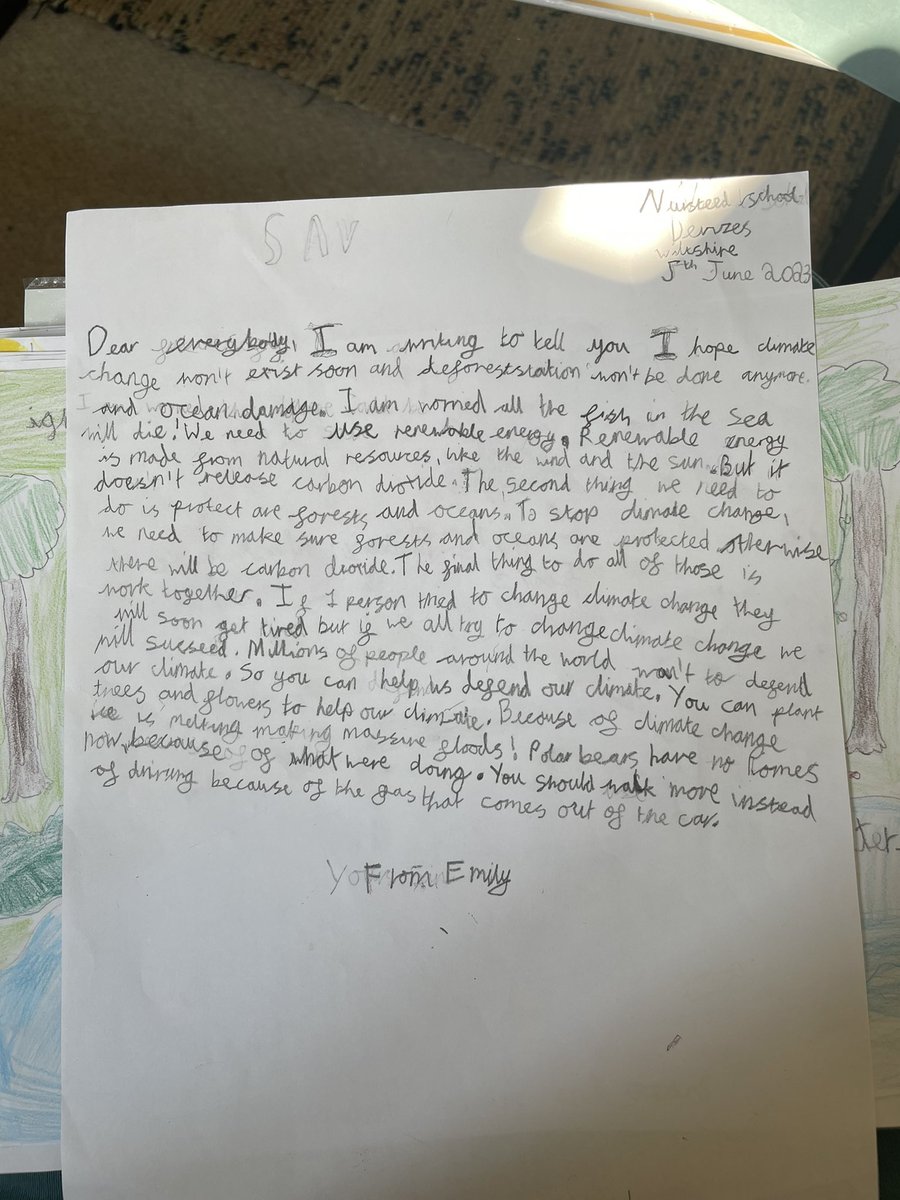 SAV
school
Devizes
Wiltshire
5th June 2023
Dear everybody, I am writing to tell you I hope climate
change won't exist soon and deforeststation won't be done anymore.
and ocean damage. I am worried all the fish in the sea
will die! We need to use renewable energy. Renewable energy
is made from natural resources, like the wind and the sun. But it
doesn't release carbon dioxide. The second thing we need to
do is protect are forests and oceans. To stop climate change,
we need to make sure forests and oceans are protected otherwise
there will be carbon dioxide. The final thing to do all of those is
work together. If 1 person tried to change climate change they
will soon get tired but if we all try to change climate change we
will succeed. Millions of people around the world wan't to defend
our climate. So you can help us defend our climate. You can plant
trees and flowers to help our climate. Because of climate change
ice is melting making massive floods! Polar bears have no homes
now, because of what were doing. You should walk move instead
of driving because of the gas that comes out of the car.
From Emily